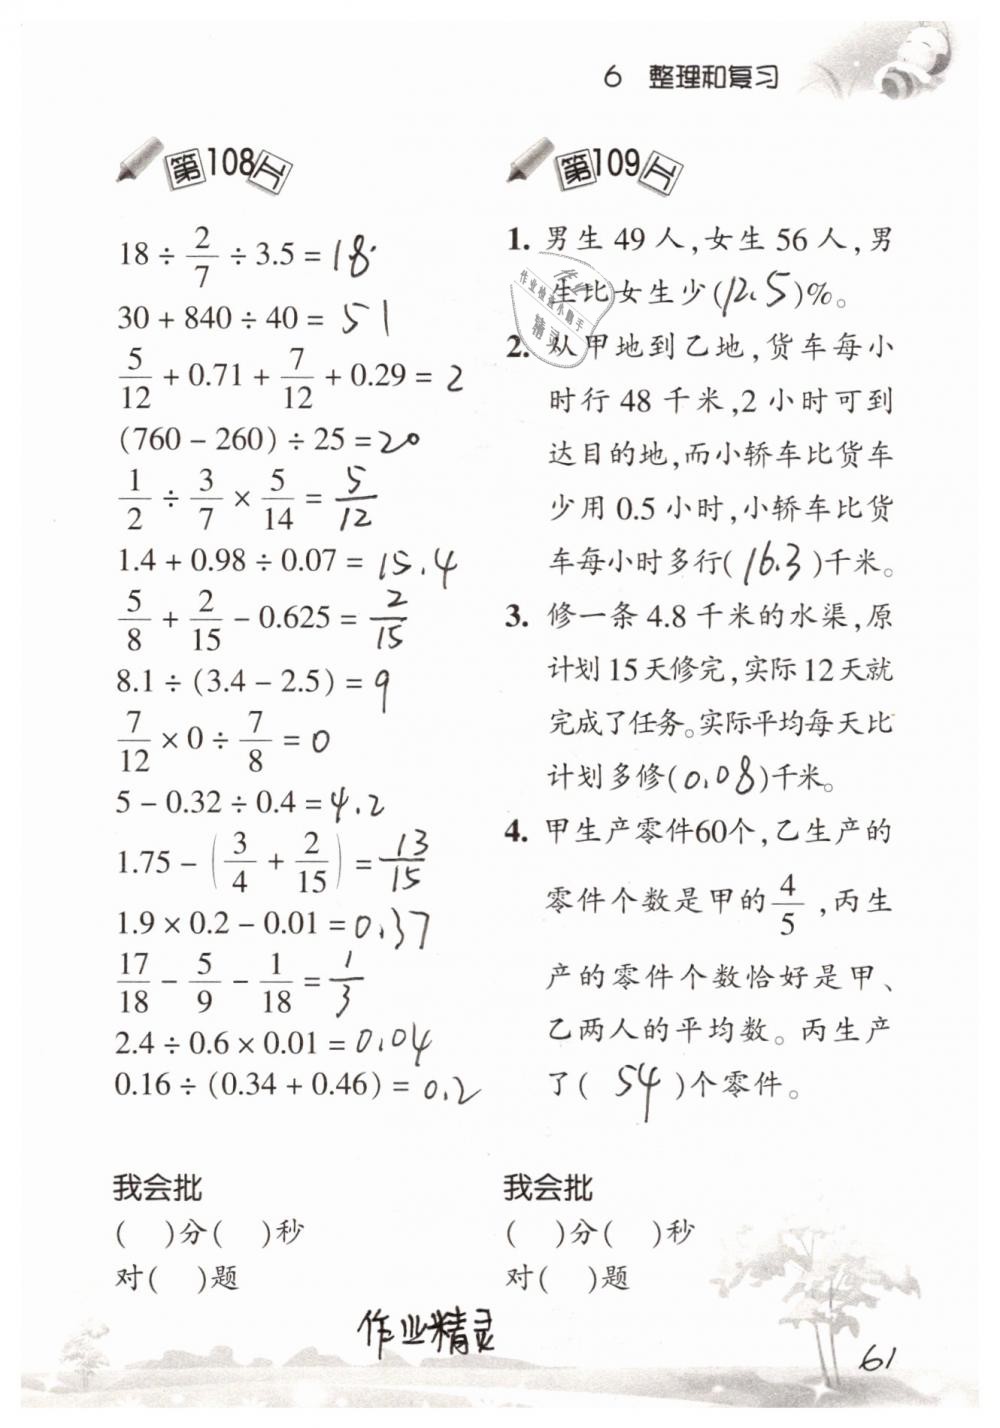 6 整理和复习
第108工
18 ÷ 2/7 ÷ 3.5 = 18
30 + 840 ÷ 40 = 51
5/12 + 0.71 + 7/12 + 0.29 = 2
(760 - 260) ÷ 25 = 20
1/2 ÷ 3/7 × 5/14 = 5/12
1.4 + 0.98 ÷ 0.07 = 15.4
5/8 + 2/15 - 0.625 = 2/15
8.1 ÷ (3.4 - 2.5) = 9
7/12 × 0 ÷ 7/8 = 0
5 - 0.32 ÷ 0.4 = 4.2
1.75 - (3/4 + 2/15) = 13/15
1.9 × 0.2 - 0.01 = 0.37
17/18 - 5/9 - 1/18 = 1/3
2.4 ÷ 0.6 × 0.01 = 0.04
0.16 ÷ (0.34 + 0.46) = 0.2
我会批
( )分( )秒
对( )题
第109工
1. 男生49人,女生56人,男
生比女生少(12.5)%。
2. 从甲地到乙地,货车每小
时行48千米,2小时可到
达目的地,而小轿车比货车
少用0.5小时,小轿车比货
车每小时多行(16.3)千米。
3. 修一条4.8千米的水渠,原
计划15天修完,实际12天就
完成了任务。实际平均每天比
计划多修(0.08)千米。
4. 甲生产零件60个,乙生产的
零件个数是甲的4/5,丙生
产的零件个数恰好是甲、
乙两人的平均数。丙生产
了(54)个零件。
我会批
( )分( )秒
对( )题
作业精灵
61
作业检查小助手
精灵